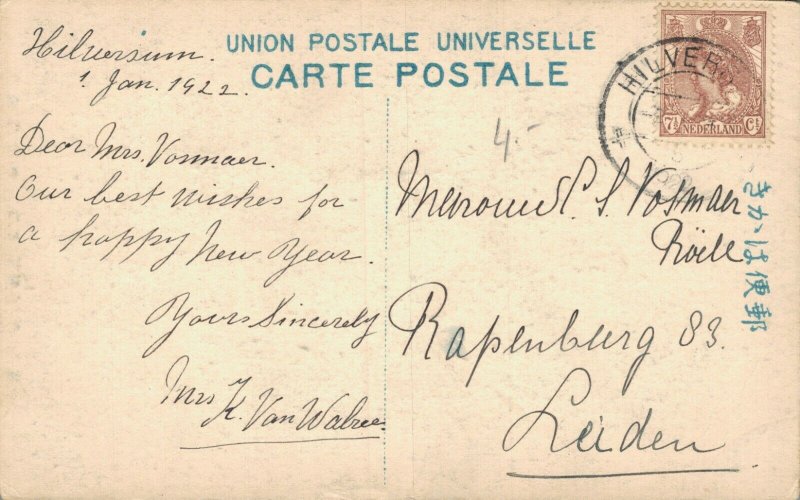 Hilversum.
1 Jan. 1922.
UNION POSTALE UNIVERSELLE
CARTE POSTALE
Dear Mrs. Vosmaer.
Our best wishes for
a happy New Year.
Yours Sincerely
Mrs K. Van Walree.
4.-
HILVERS
7½ NEDERLAND Ct
Mevrouw S. Vosmaer
Röell
Rapenburg 83.
Leiden
きかは便郵